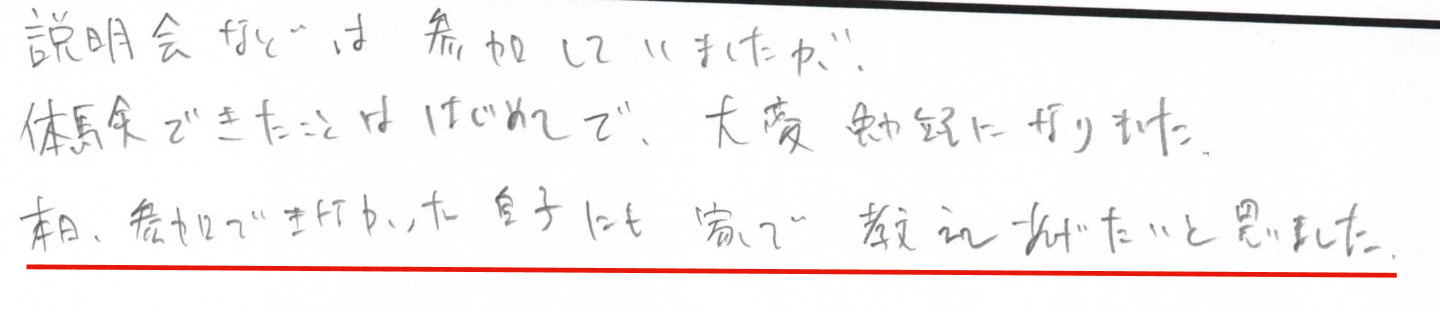 説明会などは参加していましたが、
体験できたことははじめてで、大変勉強になりました。
本日、参加できなかった息子にも家で教えてあげたいと思いました。